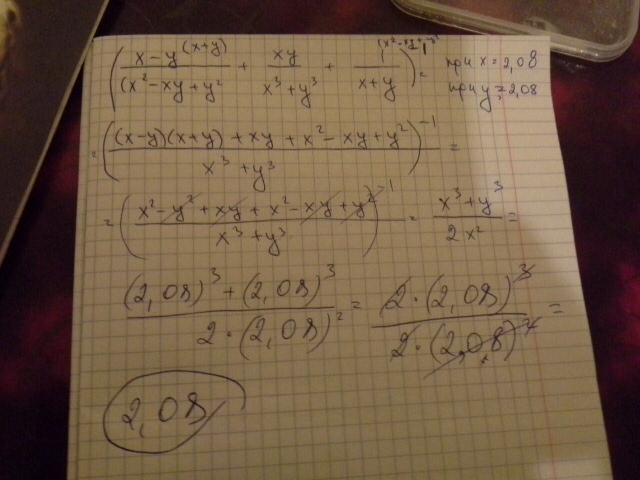 ( (x-y^(x+y))/(x²-xy+y²) + xy/(x³+y³) + 1^(x²-xy+y²)/(x+y) )^-1 = при x = 2,08
при y = 2,08
= ( ((x-y)(x+y) + xy + x² - xy + y²)/(x³+y³) )^-1 =
= ( (x² - y² + xy + x² - xy + y²)/(x³+y³) )^-1 = (x³+y³)/(2x²) =
((2,08)³ + (2,08)³)/(2·(2,08)²) = (2·(2,08)³)/(2·(2,08)²) =
2,08